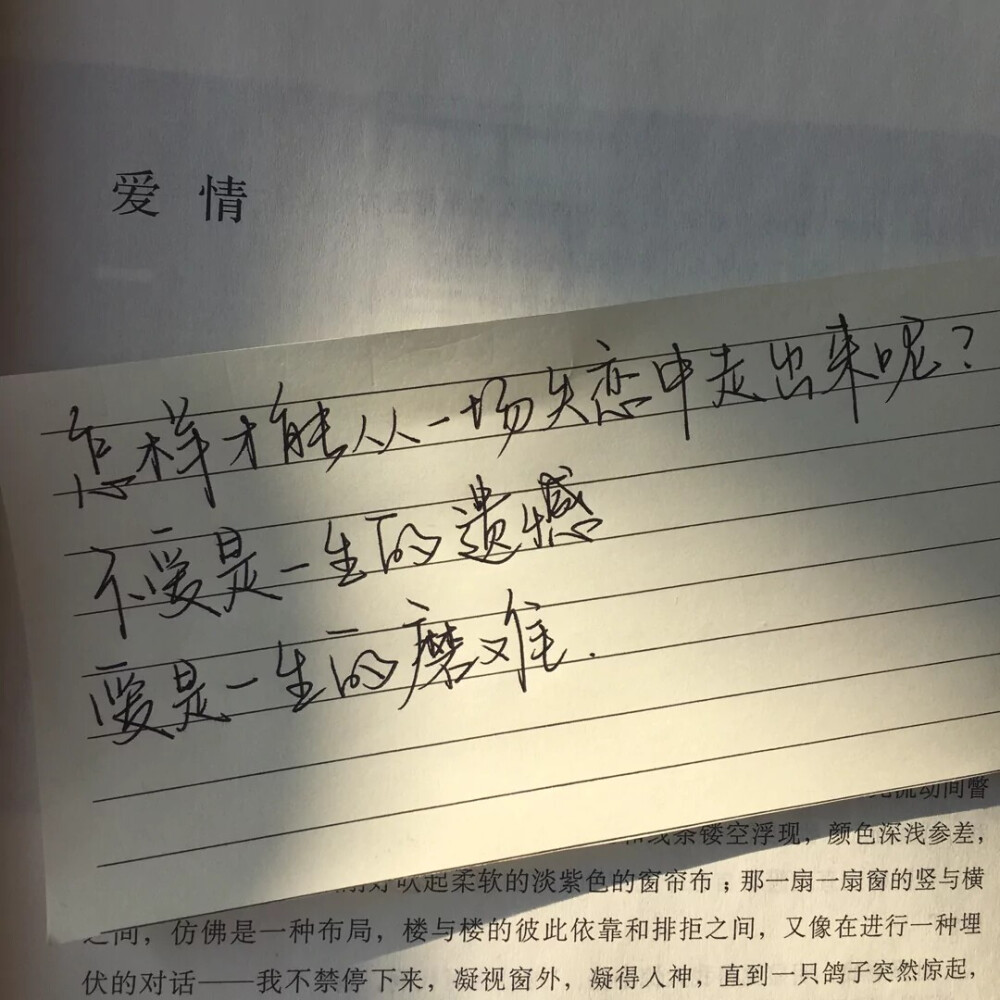 爱情
怎样才能从一场失恋中走出来呢？
不爱是一生的遗憾
爱是一生的磨难.
流动间瞥
线条镂空浮现，颜色深浅参差，
吹起柔软的淡紫色的窗帘布；那一扇一扇窗的竖与横
之间，仿佛是一种布局，楼与楼的彼此依靠和排拒之间，又像在进行一种埋
伏的对话——我不禁停下来，凝视窗外，凝得人神，直到一只鸽子突然惊起，